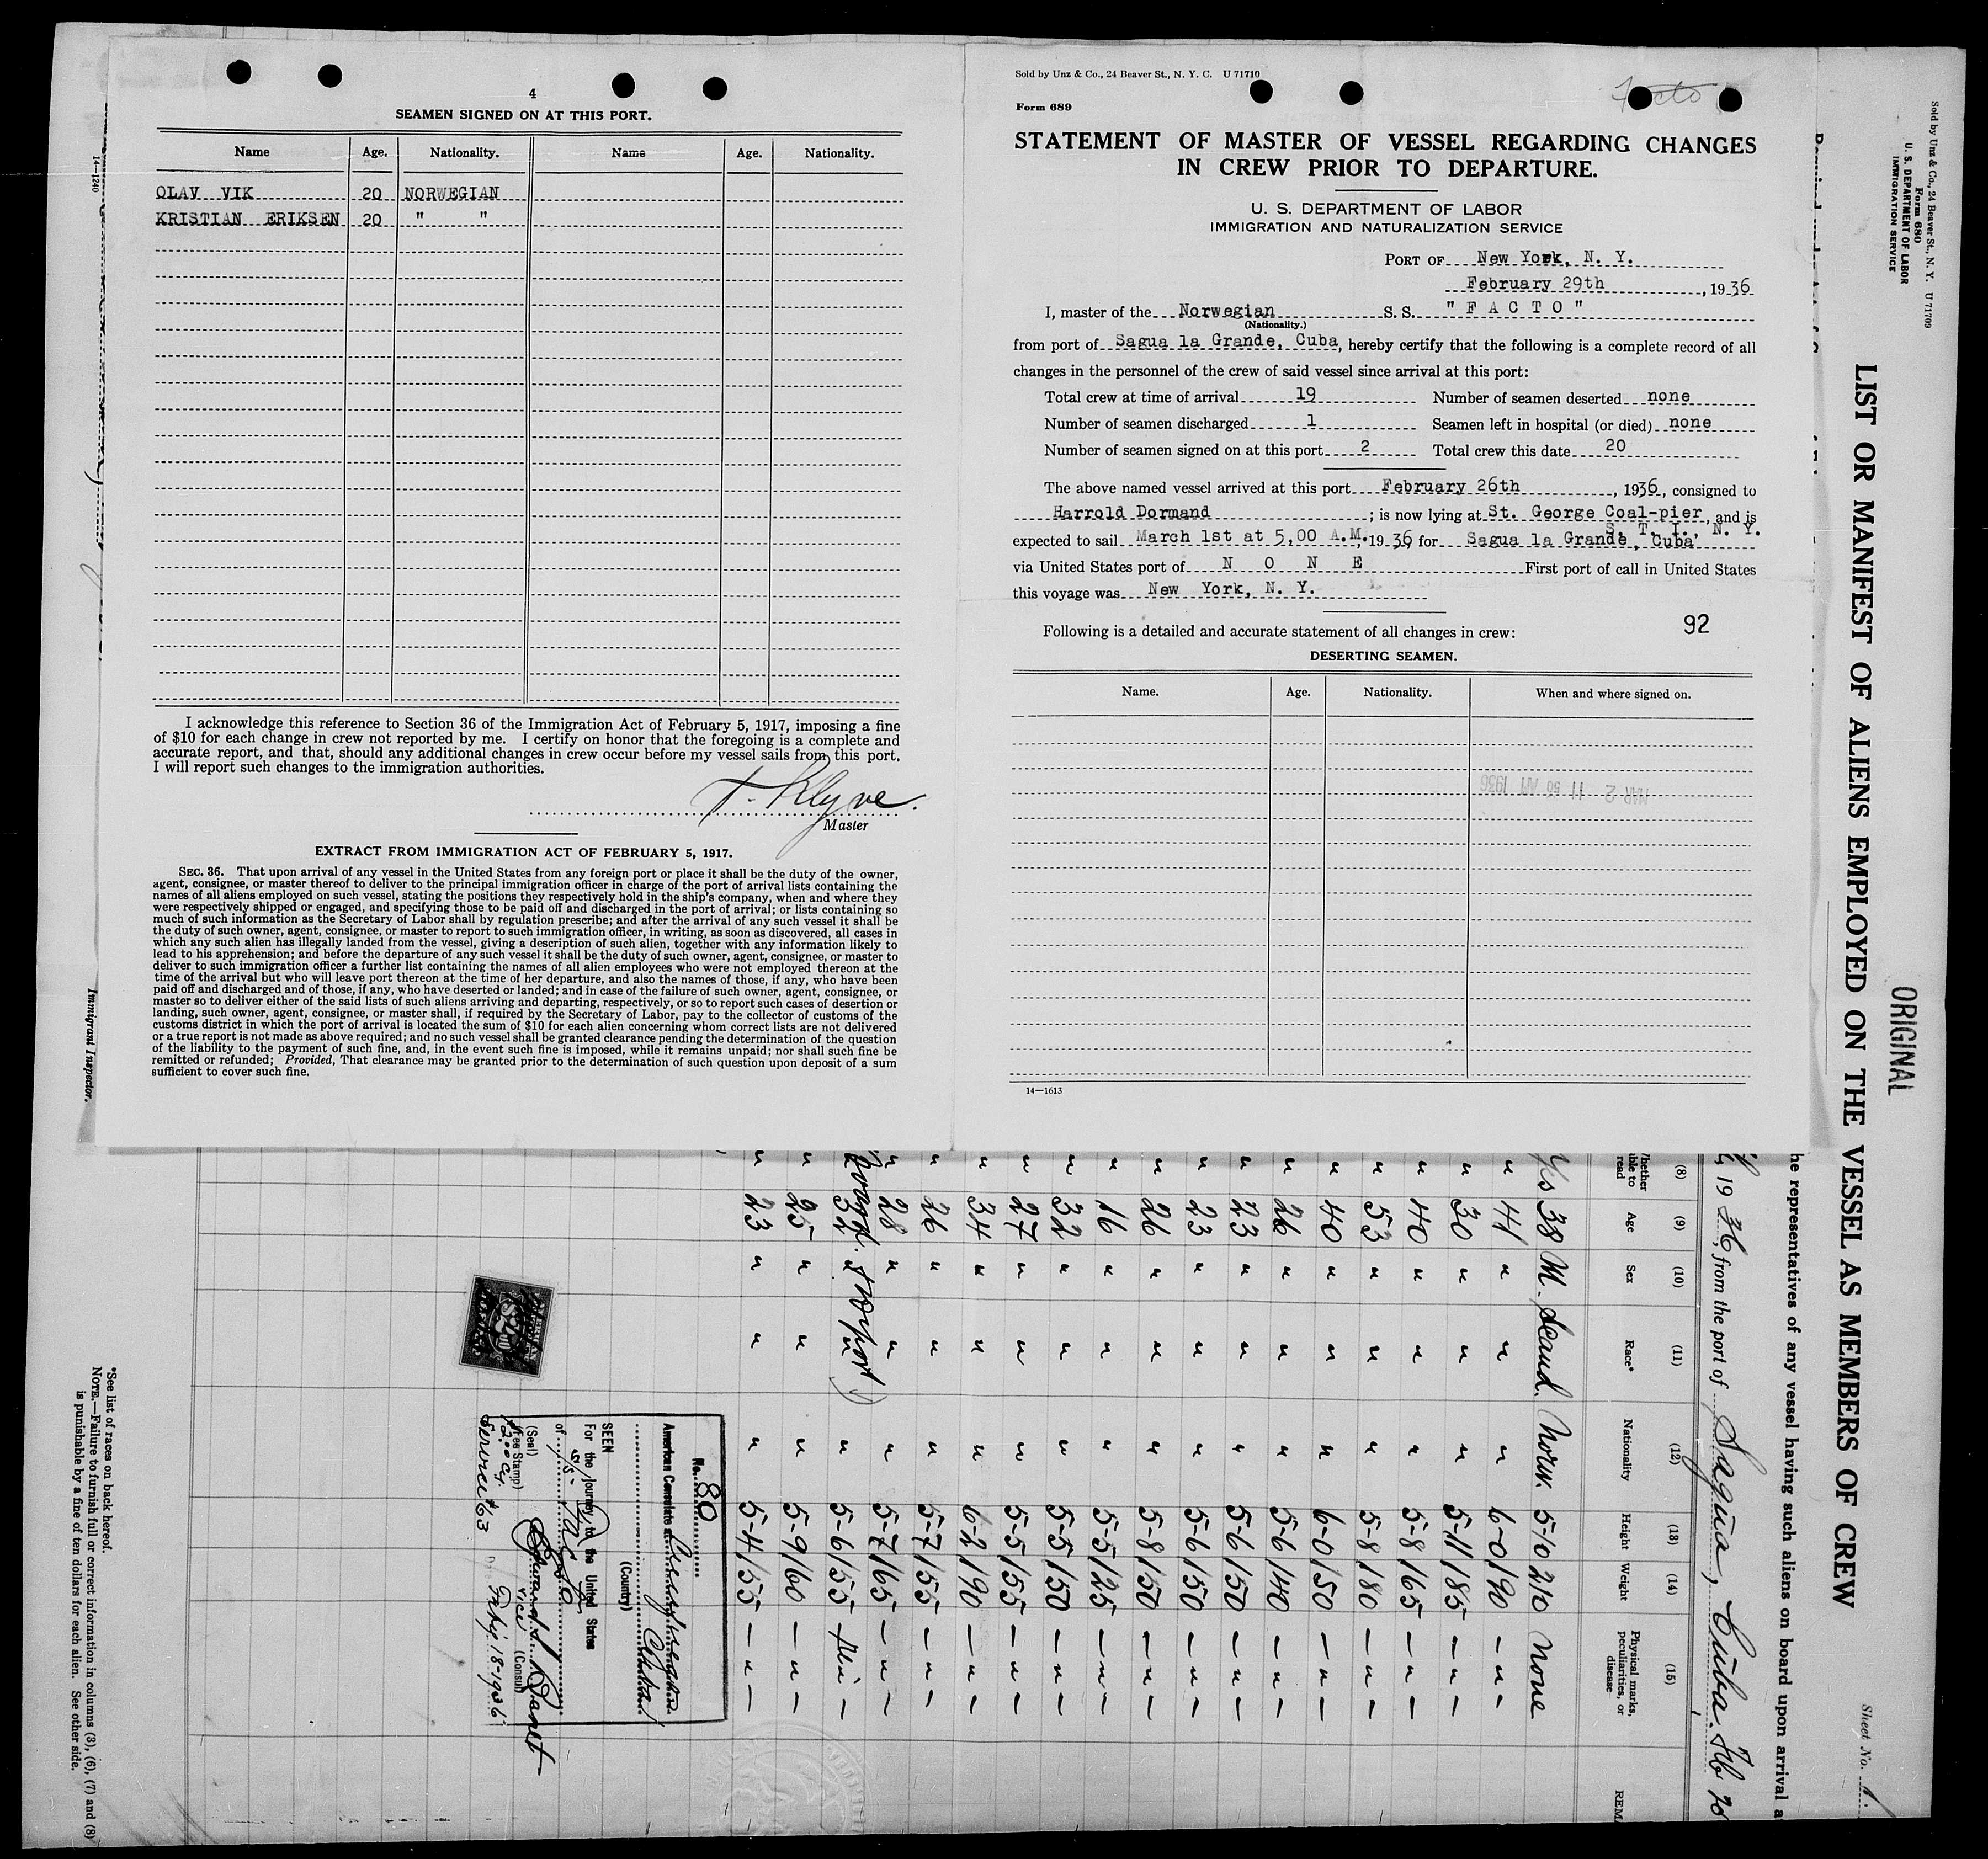 4
SEAMEN SIGNED ON AT THIS PORT.
Name Age. Nationality. Name Age. Nationality.
OLAV VIK 20 NORWEGIAN
KRISTIAN ERIKSEN 20 " "
I acknowledge this reference to Section 36 of the Immigration Act of February 5, 1917, imposing a fine
of $10 for each change in crew not reported by me. I certify on honor that the foregoing is a complete and
accurate report, and that, should any additional changes in crew occur before my vessel sails from this port,
I will report such changes to the immigration authorities.
T. Klyve.
Master
EXTRACT FROM IMMIGRATION ACT OF FEBRUARY 5, 1917.
SEC. 36. That upon arrival of any vessel in the United States from any foreign port or place it shall be the duty of the owner,
agent, consignee, or master thereof to deliver to the principal immigration officer in charge of the port of arrival lists containing the
names of all aliens employed on such vessel, stating the positions they respectively hold in the ship's company, when and where they
were respectively shipped or engaged, and specifying those to be paid off and discharged in the port of arrival; or lists containing so
much of such information as the Secretary of Labor shall by regulation prescribe; and after the arrival of any such vessel it shall be
the duty of such owner, agent, consignee, or master to report to such immigration officer, in writing, as soon as discovered, all cases in
which any such alien has illegally landed from the vessel, giving a description of such alien, together with any information likely to
lead to his apprehension; and before the departure of any such vessel it shall be the duty of such owner, agent, consignee, or master to
deliver to such immigration officer a further list containing the names of all alien employees who were not employed thereon at the
time of the arrival but who will leave port thereon at the time of her departure, and also the names of those, if any, who have been
paid off and discharged and of those, if any, who have deserted or landed; and in case of the failure of such owner, agent, consignee, or
master so to deliver either of the said lists of such aliens arriving and departing, respectively, or so to report such cases of desertion or
landing, such owner, agent, consignee, or master shall, if required by the Secretary of Labor, pay to the collector of customs of the
customs district in which the port of arrival is located the sum of $10 for each alien concerning whom correct lists are not delivered
or a true report is not made as above required; and no such vessel shall be granted clearance pending the determination of the question
of the liability to the payment of such fine, and, in the event such fine is imposed, while it remains unpaid; nor shall such fine be
remitted or refunded; Provided, That clearance may be granted prior to the determination of such question upon deposit of a sum
sufficient to cover such fine.
14—1240
Immigrant Inspector.
Sold by Unz & Co., 24 Beaver St., N. Y. C. U 71710
Facto
Form 689
STATEMENT OF MASTER OF VESSEL REGARDING CHANGES
IN CREW PRIOR TO DEPARTURE.
U. S. DEPARTMENT OF LABOR
IMMIGRATION AND NATURALIZATION SERVICE
PORT OF New York, N. Y.
February 29th, 1936
I, master of the Norwegian S. S. "F A C T O"
(Nationality.)
from port of Sagua la Grande, Cuba, hereby certify that the following is a complete record of all
changes in the personnel of the crew of said vessel since arrival at this port:
Total crew at time of arrival 19 Number of seamen deserted none
Number of seamen discharged 1 Seamen left in hospital (or died) none
Number of seamen signed on at this port 2 Total crew this date 20
The above named vessel arrived at this port February 26th, 1936, consigned to
Harrold Dormand; is now lying at St. George Coal-pier, and is
S. T. I., N. Y.
expected to sail March 1st at 5,00 A.M., 1936 for Sagua la Grande, Cuba
via United States port of N O N E First port of call in United States
this voyage was New York, N. Y.
92
Following is a detailed and accurate statement of all changes in crew:
DESERTING SEAMEN.
Name. Age. Nationality. When and where signed on.
MAR 2 11 50 AM 1936
14—1613
Sold by Unz & Co., 24 Beaver St., N. Y. U 71709
Form 680
U. S. DEPARTMENT OF LABOR
IMMIGRATION SERVICE
ORIGINAL
Sheet No. 1
LIST OR MANIFEST OF ALIENS EMPLOYED ON THE VESSEL AS MEMBERS OF CREW
he representatives of any vessel having such aliens on board upon arrival a
, 1936, from the port of Sagua, Cuba. Feb 20
(8) (9) (10) (11) (12) (13) (14) (15)
Whether able to read Age Sex Race* Nationality Height Weight Physical marks, peculiarities, or disease REM
Yes 38 M. Scand. Norw. 5-10 210 None
" 41 " " " 6-0 190 — " —
" 30 " " " 5-11 185 — " —
" 40 " " " 5-8 165 — " —
" 53 " " " 5-8 180 — " —
" 40 " " " 6-0 150 — " —
" 26 " " " 5-6 140 — " —
" 23 " " " 5-6 150 — " —
" 23 " " " 5-6 150 — " —
" 26 " " " 5-8 150 — " —
" 16 " " " 5-5 125 — " —
" 32 " " " 5-5 150 — " —
" 27 " " " 5-5 155 — " —
" 34 " " " 6-2 190 — " —
" 26 " " " 5-7 155 — " —
" 28 " " " 5-7 165 — " —
32 " " 5-6 155
" 25 " " " 5-9 160 — " —
" 23 " " " 5-4 155 — " —
No. 80
American Consulate at Cienfuegos
Cuba
(Country)
SEEN
For the journey to the United States
of S/S- Facto
Edward S. Benet
Vice (Consul)
(Seal)
(Fee Stamp)
$2.00 Cy.
Service #63
Feby 18-1936.
*See list of races on back hereof.
NOTE.—Failure to furnish full or correct information in columns (3), (6), (7) and (8)
is punishable by a fine of ten dollars for each alien. See other side.